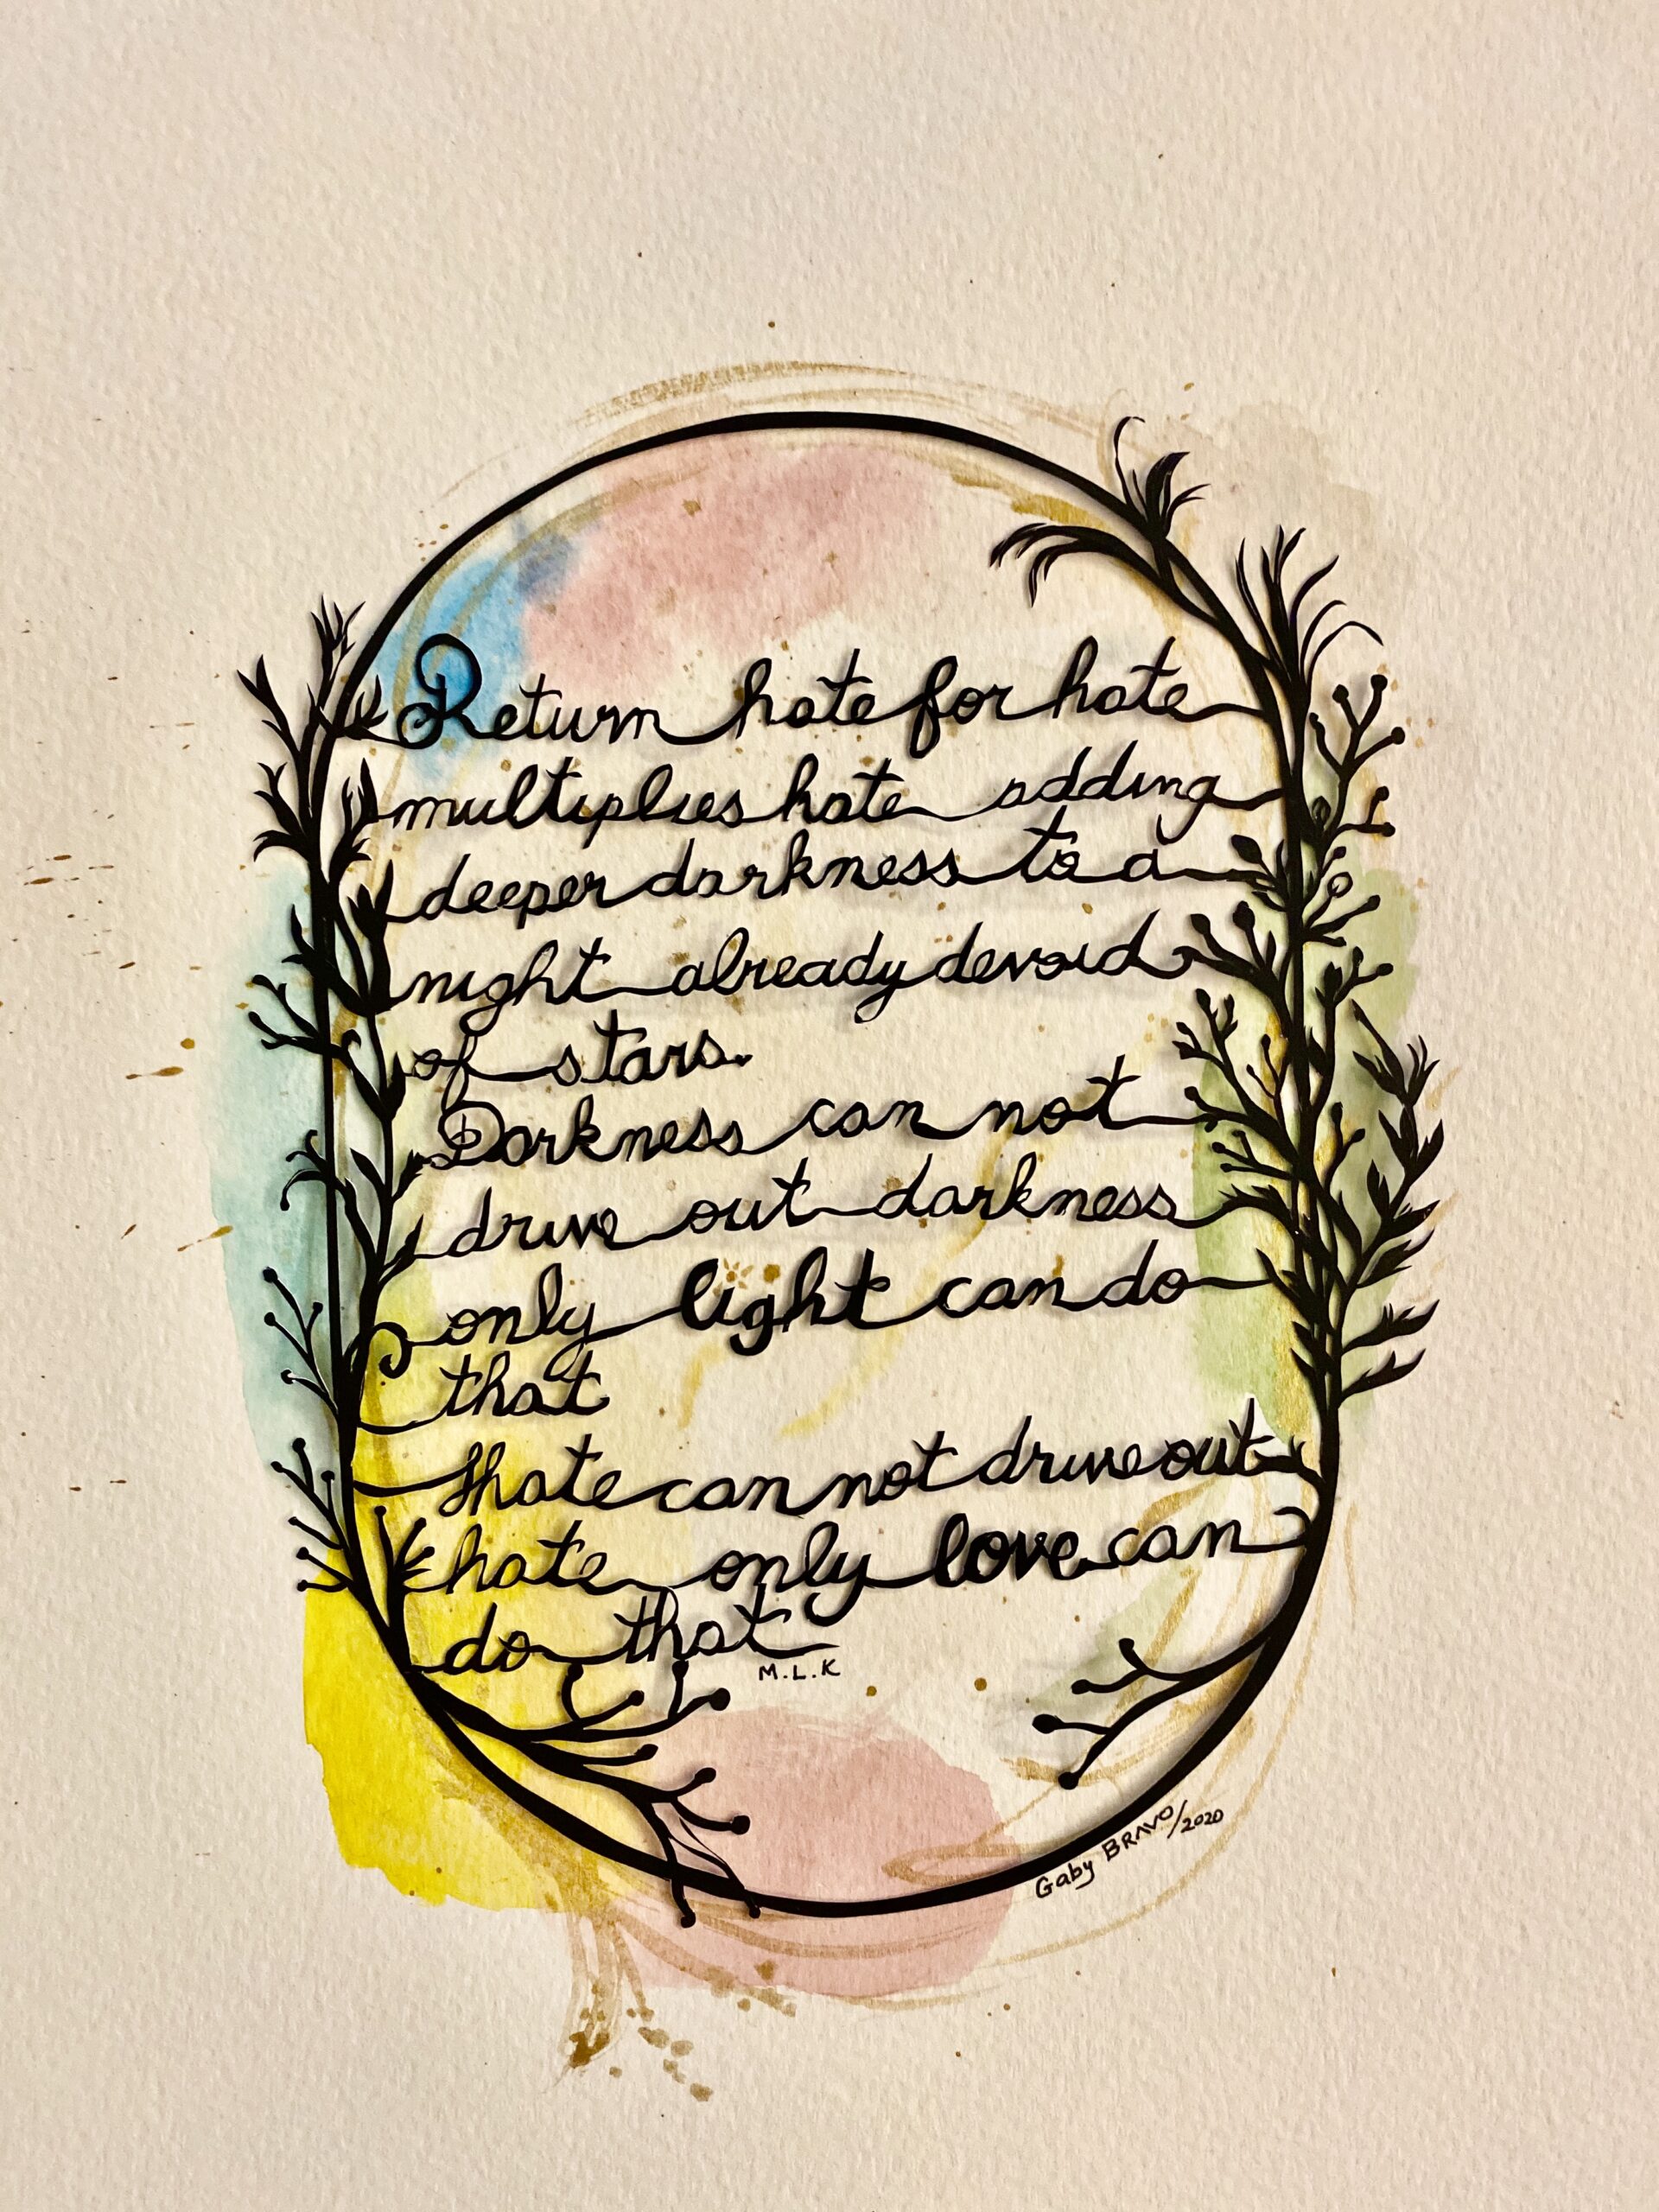 Return hate for hate
multiplies hate adding
deeper darkness to a
night already devoid
of stars.
Darkness can not
drive out darkness
only light can do
that
Hate can not drive out
hate only love can
do that
M.L.K
Gaby BRAVO/2020